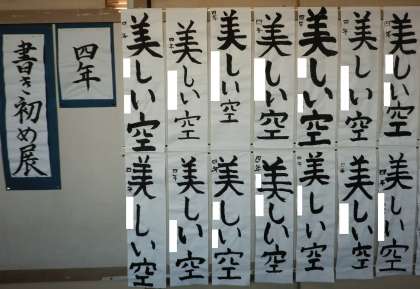 書き初め展
四年
美しい空
美しい空
美しい空
美しい空
美しい空
美しい空
美しい空
美しい空
美しい空
美しい空
美しい空
美しい空
美しい空
美しい空